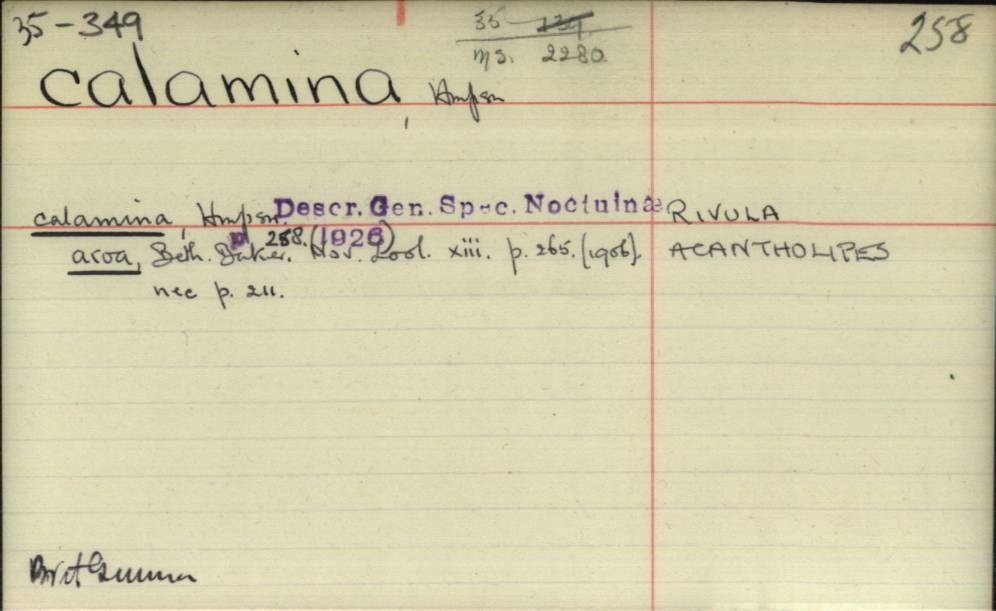 35-349
35 139
ms. 2280.
258
calamina, Hmpsn
calamina, Hmpsn. Descr. Gen. Spec. Noctuinæ RIVULA
p. 258. (1926)
aroa, Beth. Baker. Nov. Zool. xiii. p. 265. (1906). ACANTHOLIPES
nec p. 211.
Brit Guinea